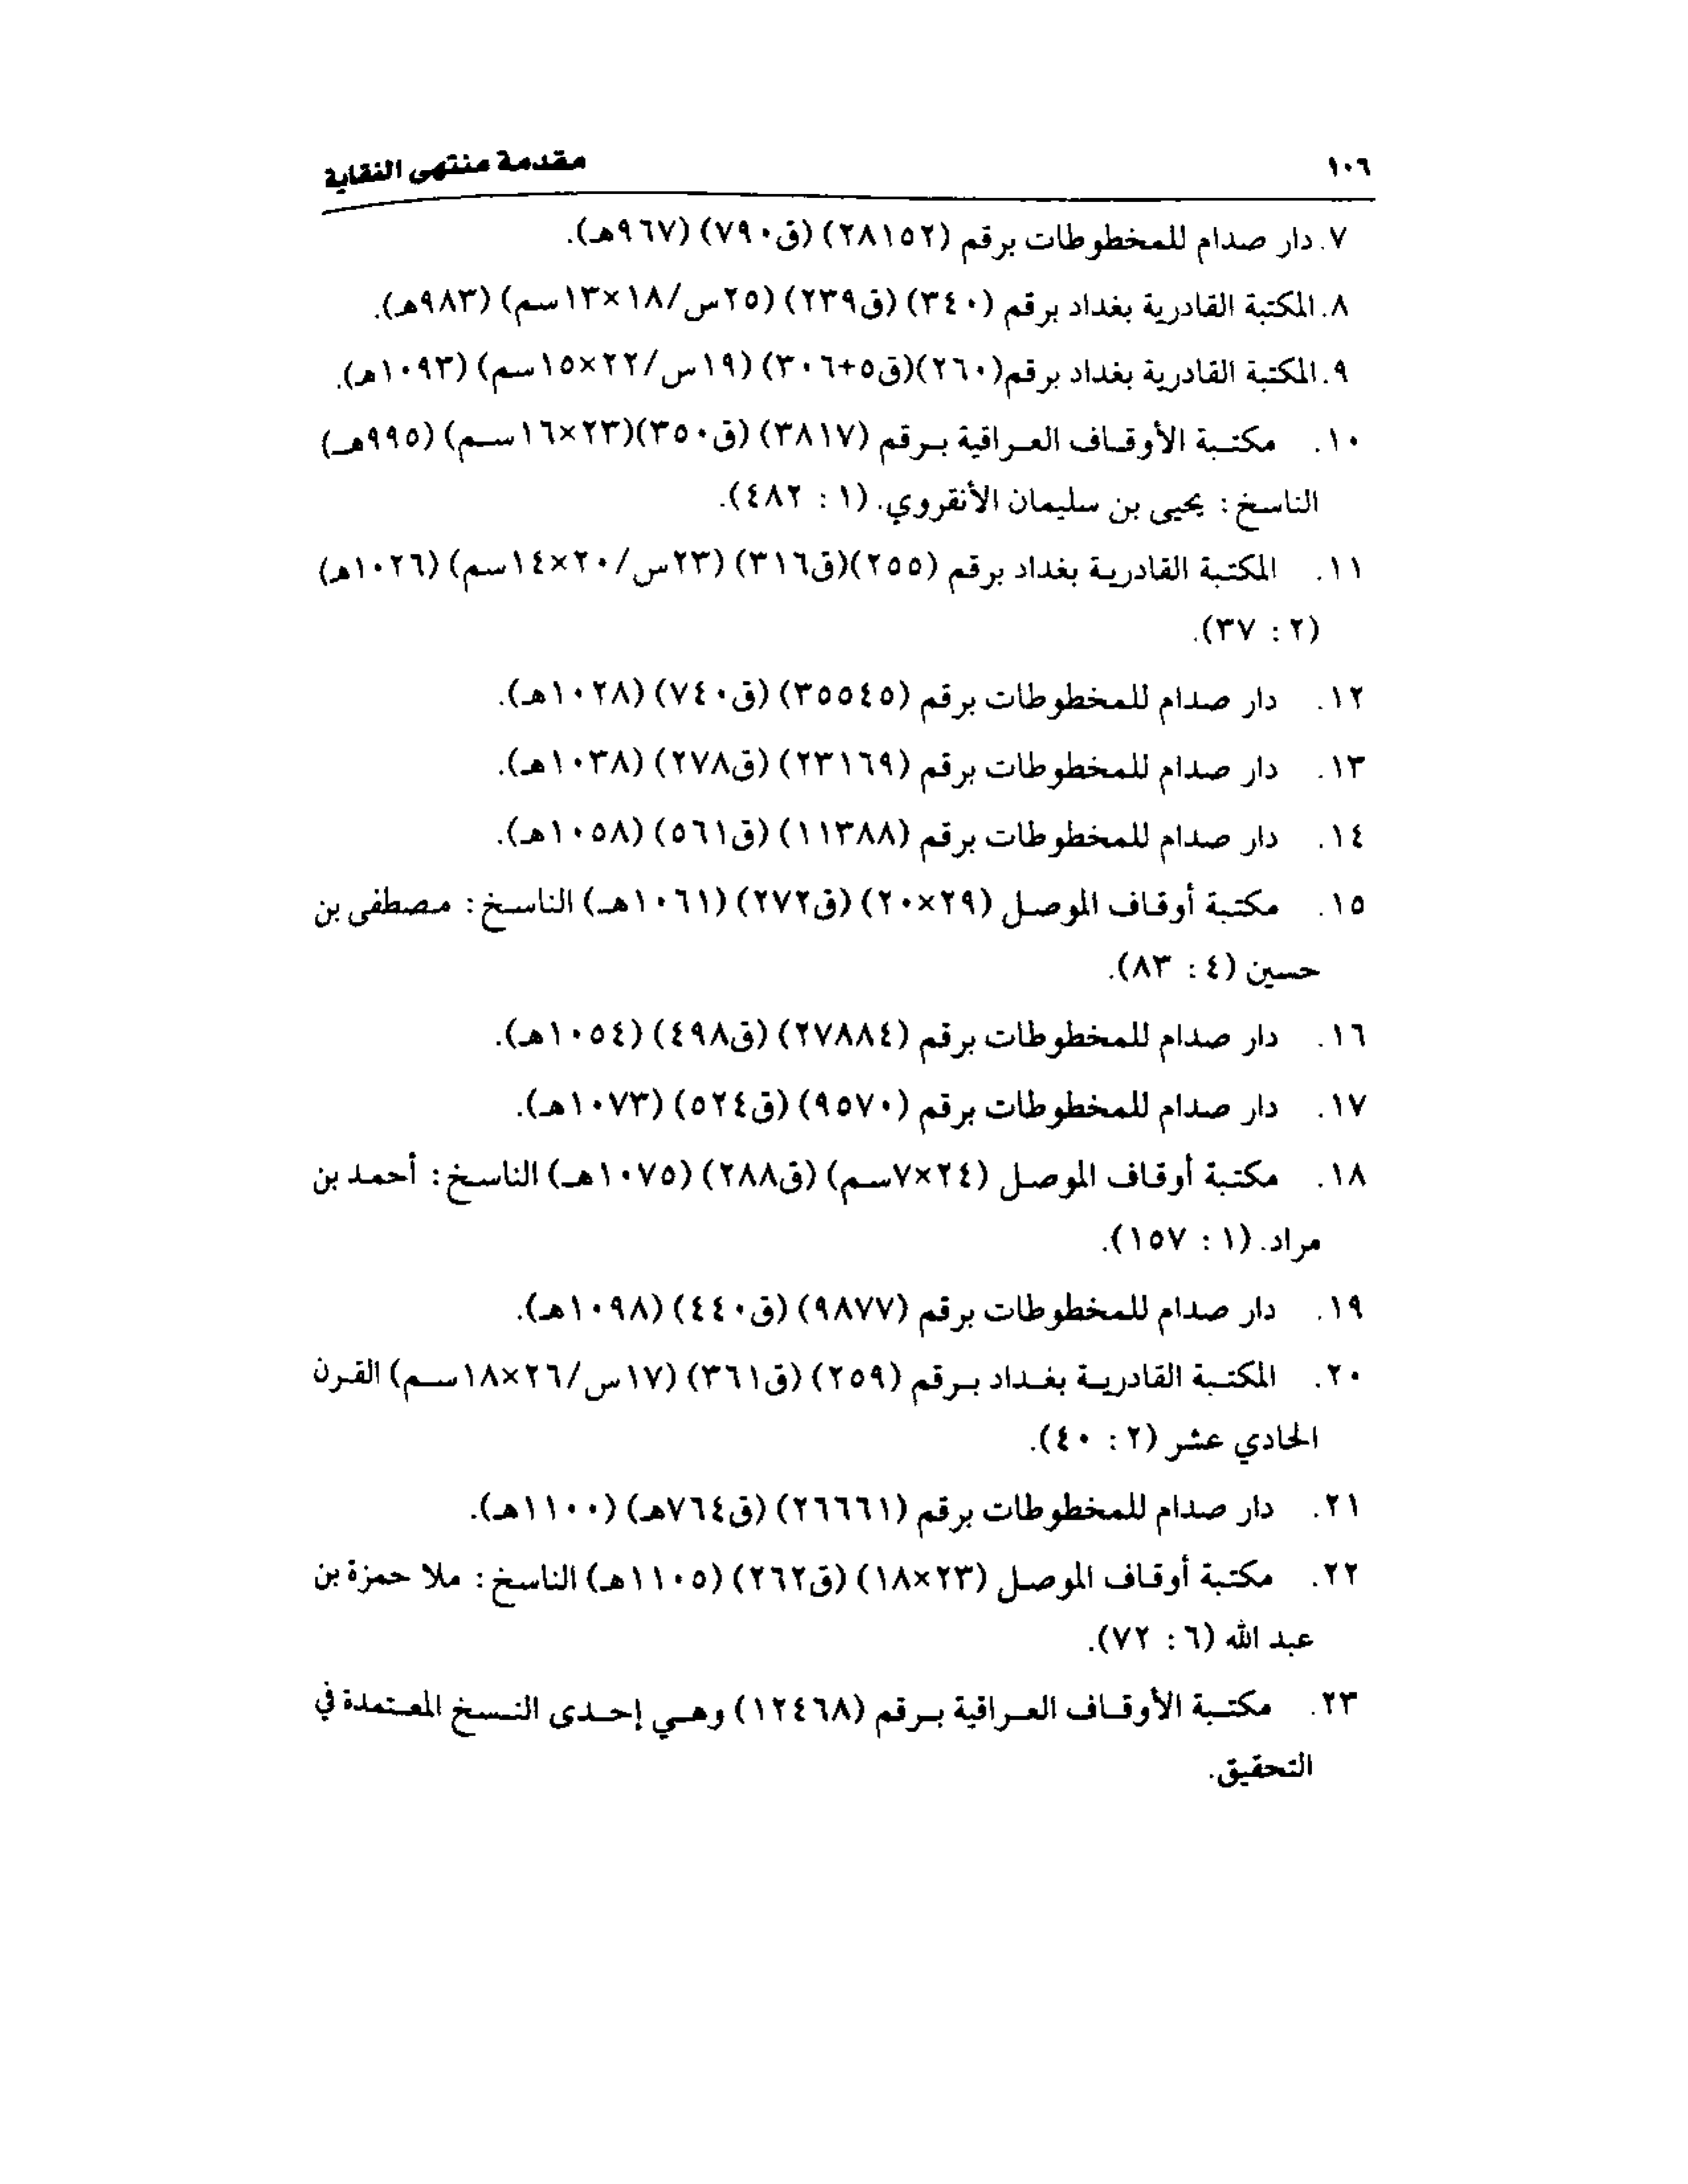 ١٠٦ مقدمة منتهى النقاية
٧. دار صدام للمخطوطات برقم (٢٨١٥٢) (ق٧٩٠) (٩٦٧هـ).
٨. المكتبة القادرية بغداد برقم (٣٤٠) (ق٢٣٩) (٢٥س/١٨×١٣سم) (٩٨٣هـ).
٩. المكتبة القادرية بغداد برقم(٢٦٠)(ق٥+٣٠٦) (١٩س/٢٢×١٥سم) (١٠٩٣هـ).
١٠. مكتبة الأوقاف العراقية برقم (٣٨١٧) (ق٣٥٠)(٢٣×١٦سم) (٩٩٥هـ)
الناسخ: يحيى بن سليمان الأنقروي. (١ : ٤٨٢).
١١. المكتبة القادرية بغداد برقم (٢٥٥)(ق٣١٦) (٢٣س/٢٠×١٤سم) (١٠٢٦هـ)
(٢ : ٣٧).
١٢. دار صدام للمخطوطات برقم (٣٥٥٤٥) (ق٧٤٠) (١٠٢٨هـ).
١٣. دار صدام للمخطوطات برقم (٢٣١٦٩) (ق٢٧٨) (١٠٣٨هـ).
١٤. دار صدام للمخطوطات برقم (١١٣٨٨) (ق٥٦١) (١٠٥٨هـ).
١٥. مكتبة أوقاف الموصل (٢٩×٢٠) (ق٢٧٢) (١٠٦١هـ) الناسخ: مصطفى بن
حسين (٤ : ٨٣).
١٦. دار صدام للمخطوطات برقم (٢٧٨٨٤) (ق٤٩٨) (١٠٥٤هـ).
١٧. دار صدام للمخطوطات برقم (٩٥٧٠) (ق٥٢٤) (١٠٧٣هـ).
١٨. مكتبة أوقاف الموصل (٢٤×٧سم) (ق٢٨٨) (١٠٧٥هـ) الناسخ: أحمد بن
مراد. (١ : ١٥٧).
١٩. دار صدام للمخطوطات برقم (٩٨٧٧) (ق٤٤٠) (١٠٩٨هـ).
٢٠. المكتبة القادرية بغداد برقم (٢٥٩) (ق٣٦١) (١٧س/٢٦×١٨سم) القرن
الحادي عشر (٢ : ٤٠).
٢١. دار صدام للمخطوطات برقم (٢٦٦٦١) (ق٧٦٤هـ) (١١٠٠هـ).
٢٢. مكتبة أوقاف الموصل (٢٣×١٨) (ق٢٦٢) (١١٠٥هـ) الناسخ: ملا حمزة بن
عبد الله (٦ : ٧٢).
٢٣. مكتبة الأوقاف العراقية برقم (١٢٤٦٨) وهي إحدى النسخ المعتمدة في
التحقيق.